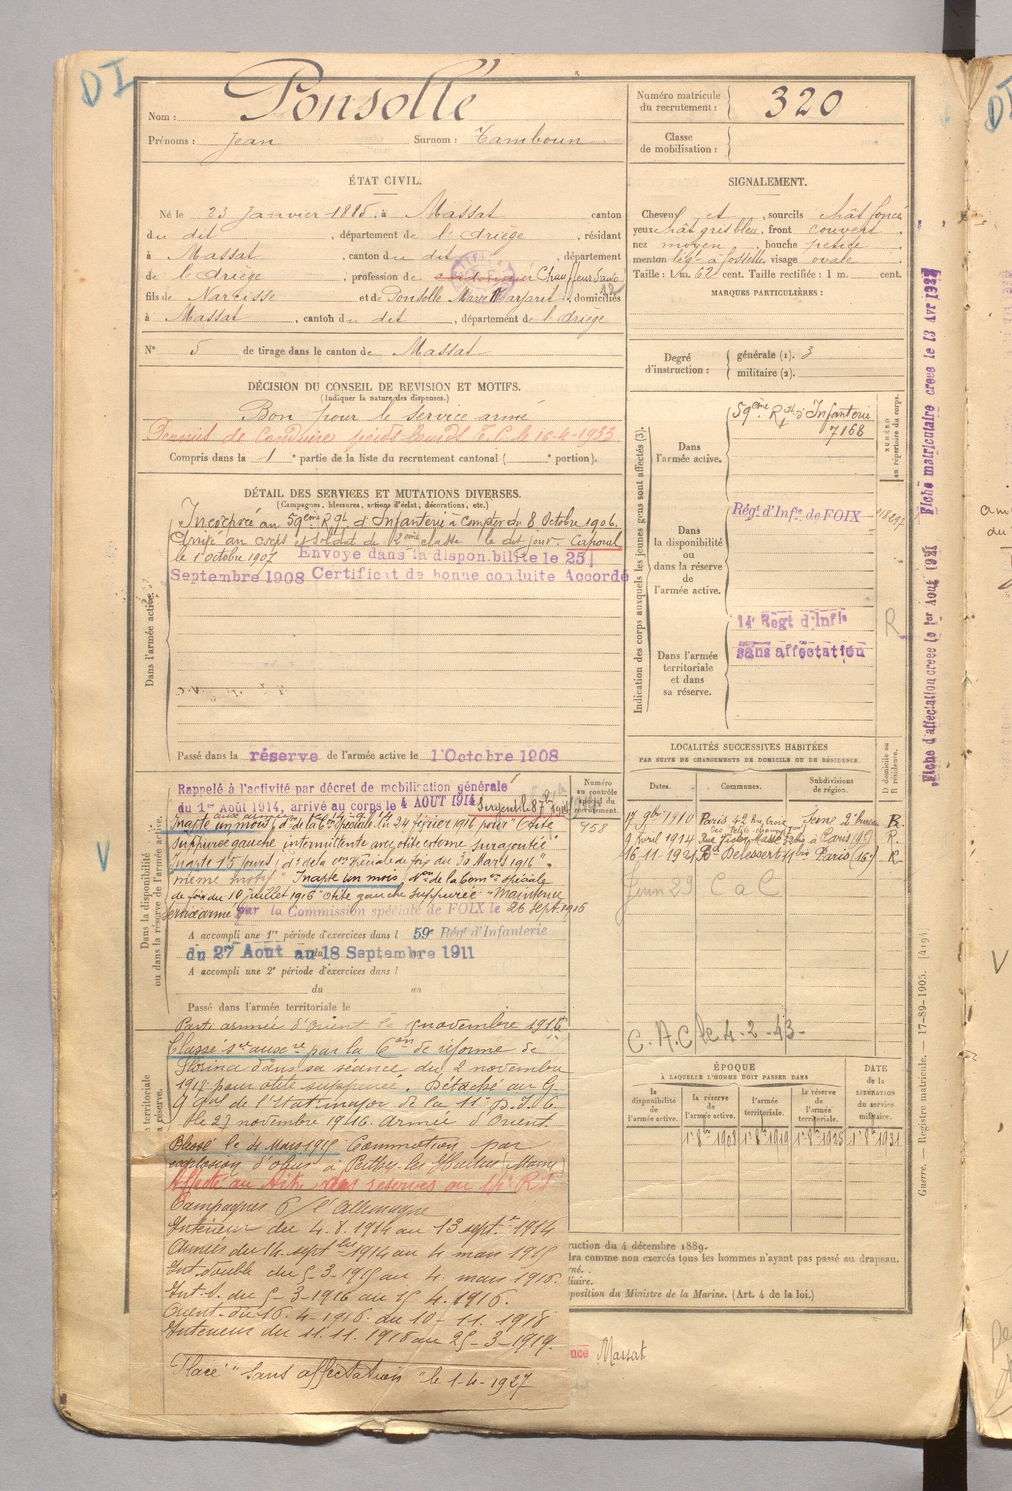 DI
Nom : Ponsolle
Prénoms : Jean Surnom : Tambour
Numéro matricule du recrutement : 320
Classe de mobilisation :
ÉTAT CIVIL.
Né le 23 Janvier 1885, à Massat, canton
du dit, département de l'Ariège, résidant
à Massat, canton du dit, département
de l'Ariège, profession de cordonnier Chauffeur d'auto
fils de Narcisse et de Ponsolle Marie Margarit, domiciliés
à Massat, canton du dit, département de l'Ariège
N° 5 de tirage dans le canton de Massat
SIGNALEMENT.
Cheveux et, sourcils chât foncé
yeux chât gris bleu, front couvert,
nez moyen, bouche petite,
menton à fossette, visage ovale
Taille : 1 m. 62 cent. Taille rectifiée : 1 m. cent.
MARQUES PARTICULIÈRES :
Degré d'instruction : générale (1). 3
militaire (2).
DÉCISION DU CONSEIL DE REVISION ET MOTIFS.
(Indiquer la nature des dispenses.)
Bon pour le service armé
Permis de Conduire poids lourds T.C. le 10-4-1933
Compris dans la 1e partie de la liste du recrutement cantonal ( e portion).
DÉTAIL DES SERVICES ET MUTATIONS DIVERSES.
(Campagnes, blessures, actions d'éclat, décorations, etc.)
Dans l'armée active.
Incorporé au 59ème Rgt d'Infanterie à Compter du 8 Octobre 1906.
Arrivé au corps et soldat de 2ème classe le dit jour. Caporal
le 1 octobre 1907 Envoyé dans la disponibilité le 25
Septembre 1908 Certificat de bonne conduite Accordé
Passé dans la réserve de l'armée active le 1 Octobre 1908
Indication des corps auxquels les jeunes gens sont affectés (3).
NUMÉRO au répertoire du corps.
Dans l'armée active.
59ème Rgt d'Infanterie
7168
Dans la disponibilité ou dans la réserve de l'armée active.
Régt d'Infie de FOIX
Dans l'armée territoriale et dans sa réserve.
14e Regt d'Infie
sans affectation
R
Fiche matriculaire créée le 13 Avr 1927
Fiche d'affectation créée le 1er Août 1921
Dans la disponibilité ou dans la réserve de l'armée active.
V
Rappelé à l'activité par décret de mobilisation générale
du 1er Août 1914, arrivé au corps le 4 AOUT 1914 Sergent le 8 7bre 1914
Inapte un mois, don de la Con Spéciale du 24 février 1916 pour "Otite
suppurée gauche intermittente avec otite externe surajoutée"
Inapte 15 jours, don de la con spéciale de foix du 30 Mars 1916
"même motif" Inapte un mois, Don de la Comon Spéciale
de foix du 18 juillet 1916 "Otite gauche suppurée" Maintenu
service armé par la Commission spéciale de FOIX le 26 Sept. 1916
Numéro au contrôle spécial du recrutement.
958
A accompli une 1re période d'exercices dans l 59e Régt d'Infanterie
du 27 Août au 18 Septembre 1911
A accompli une 2e période d'exercices dans l
du au
Passé dans l'armée territoriale le
Parti armée d'Orient le 5 novembre 1916
Classé sce auxre par la Con de réforme de
Florina dans sa séance du 2 novembre
1917 pour otite suppurée. Détaché au G.
Qgal de l'Etat major de la 11e D.I.C.
le 27 novembre 1916. Armée d'Orient.
Blessé le 4 Mars 1915 Commotion par
explosion d'obus à Perthes-les-Hurlus (Marne)
Affecté au titre des réserves au 14e RI
Campagnes c/ l'Allemagne
Intérieur du 4.8.1914 au 13 septre 1914
Armées du 14 septbre 1914 au 4 mars 1915
Int. double du 5-3-1915 au 4 mars 1916.
Int. S. du 5-3-1916 au 15 4.1916.
Orient du 16-4-1916 au 10-11-1918
Intérieur du 11.11.1918 au 25-3-1919.
Placé "sans affectation" le 1-4-1927
LOCALITÉS SUCCESSIVES HABITÉES
PAR SUITE DE CHANGEMENTS DE DOMICILE OU DE RÉSIDENCE.
Dates. Communes. Subdivisions de région. D domicile ou R résidence.
17 9bre 1910 Paris 42 Seine 2e bureau R.
9 Avril 1914 Rue Paris (19) R.
16-11-1921 Bd Delessert 11bis Paris (16e) R
Juin 29 C a C
C.A.C. le 4-2-43-
ÉPOQUE
À LAQUELLE L'HOMME DOIT PASSER DANS
la disponibilité de l'armée active. la réserve de l'armée active. l'armée territoriale. la réserve de l'armée territoriale.
DATE de la LIBÉRATION du service militaire.
1er 8bre 1908 1er 8bre 1919 1er 8bre 1925 1er 8bre 1931
ruction du 4 décembre 1889.
dra comme non exercés tous les hommes n'ayant pas passé au drapeau.
mé.
liaire.
position du Ministre de la Marine. (Art. 4 de la loi.)
nce Massat
Guerre. — Registre matricule. — 17-89-1905. [4194]